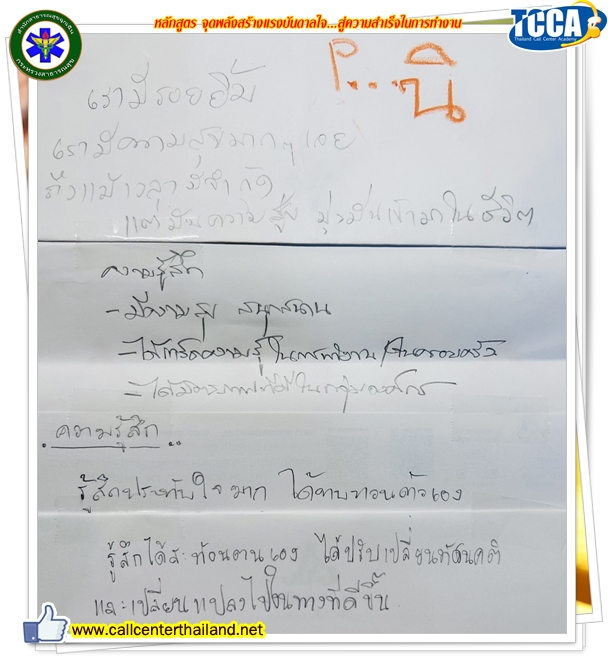 หลักสูตร จุดพลังสร้างแรงบันดาลใจ...สู่ความสำเร็จในการทำงาน
สำนักสาธารณสุขฉุกเฉิน
กระทรวงสาธารณสุข
TCCA
Thailand Call Center Academy
P...นิ
เรามีรอยยิ้ม
เรามีความสุขมากๆ เลย
ถึงแม้เวลามีจำกัด
แต่มันความสุข เข้ามาในชีวิต
ความรู้สึก
- มีความสุข สนุกสนาน
- ได้ความรู้ในการทำงาน/ในครอบครัว
- ได้มิตรภาพที่ดีใน
. ความรู้สึก ..
รู้สึกประทับใจมาก ได้ทบทวนตัวเอง
รู้สึกได้สะท้อนตนเอง ได้ปรับเปลี่ยนทัศนคติ
และเปลี่ยนแปลงไปในทางที่ดีขึ้น
www.callcenterthailand.net